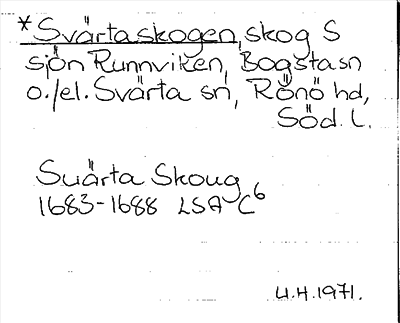 *Svärtaskogen, skog S
sjön Runnviken, Bogsta sn
o./el. Svärta sn, Rönö hd,
Söd. l.
Suärta Skoug
1683-1688 LSA C6
U.H.1971.